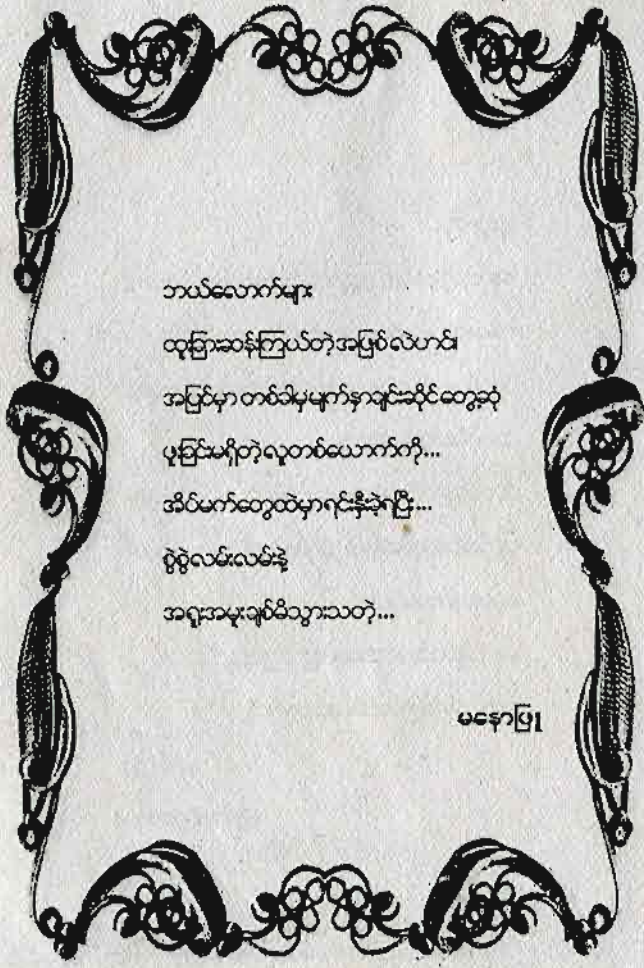 ဘယ်လောက်များ
ထူးခြားဆန်းကြယ်တဲ့အဖြစ်လဲဟင်၊
အပြင်မှာတစ်ခါမှမျက်နှာချင်းဆိုင်တွေ့ဆုံ
ဖူးခြင်းမရှိတဲ့လူတစ်ယောက်ကို...
အိပ်မက်တွေထဲမှာရင်းနှီးခဲ့ရပြီး...
စွဲစွဲလမ်းလမ်းနဲ့
အရူးအမူးချစ်မိသွားသတဲ့...
မနောဖြူ